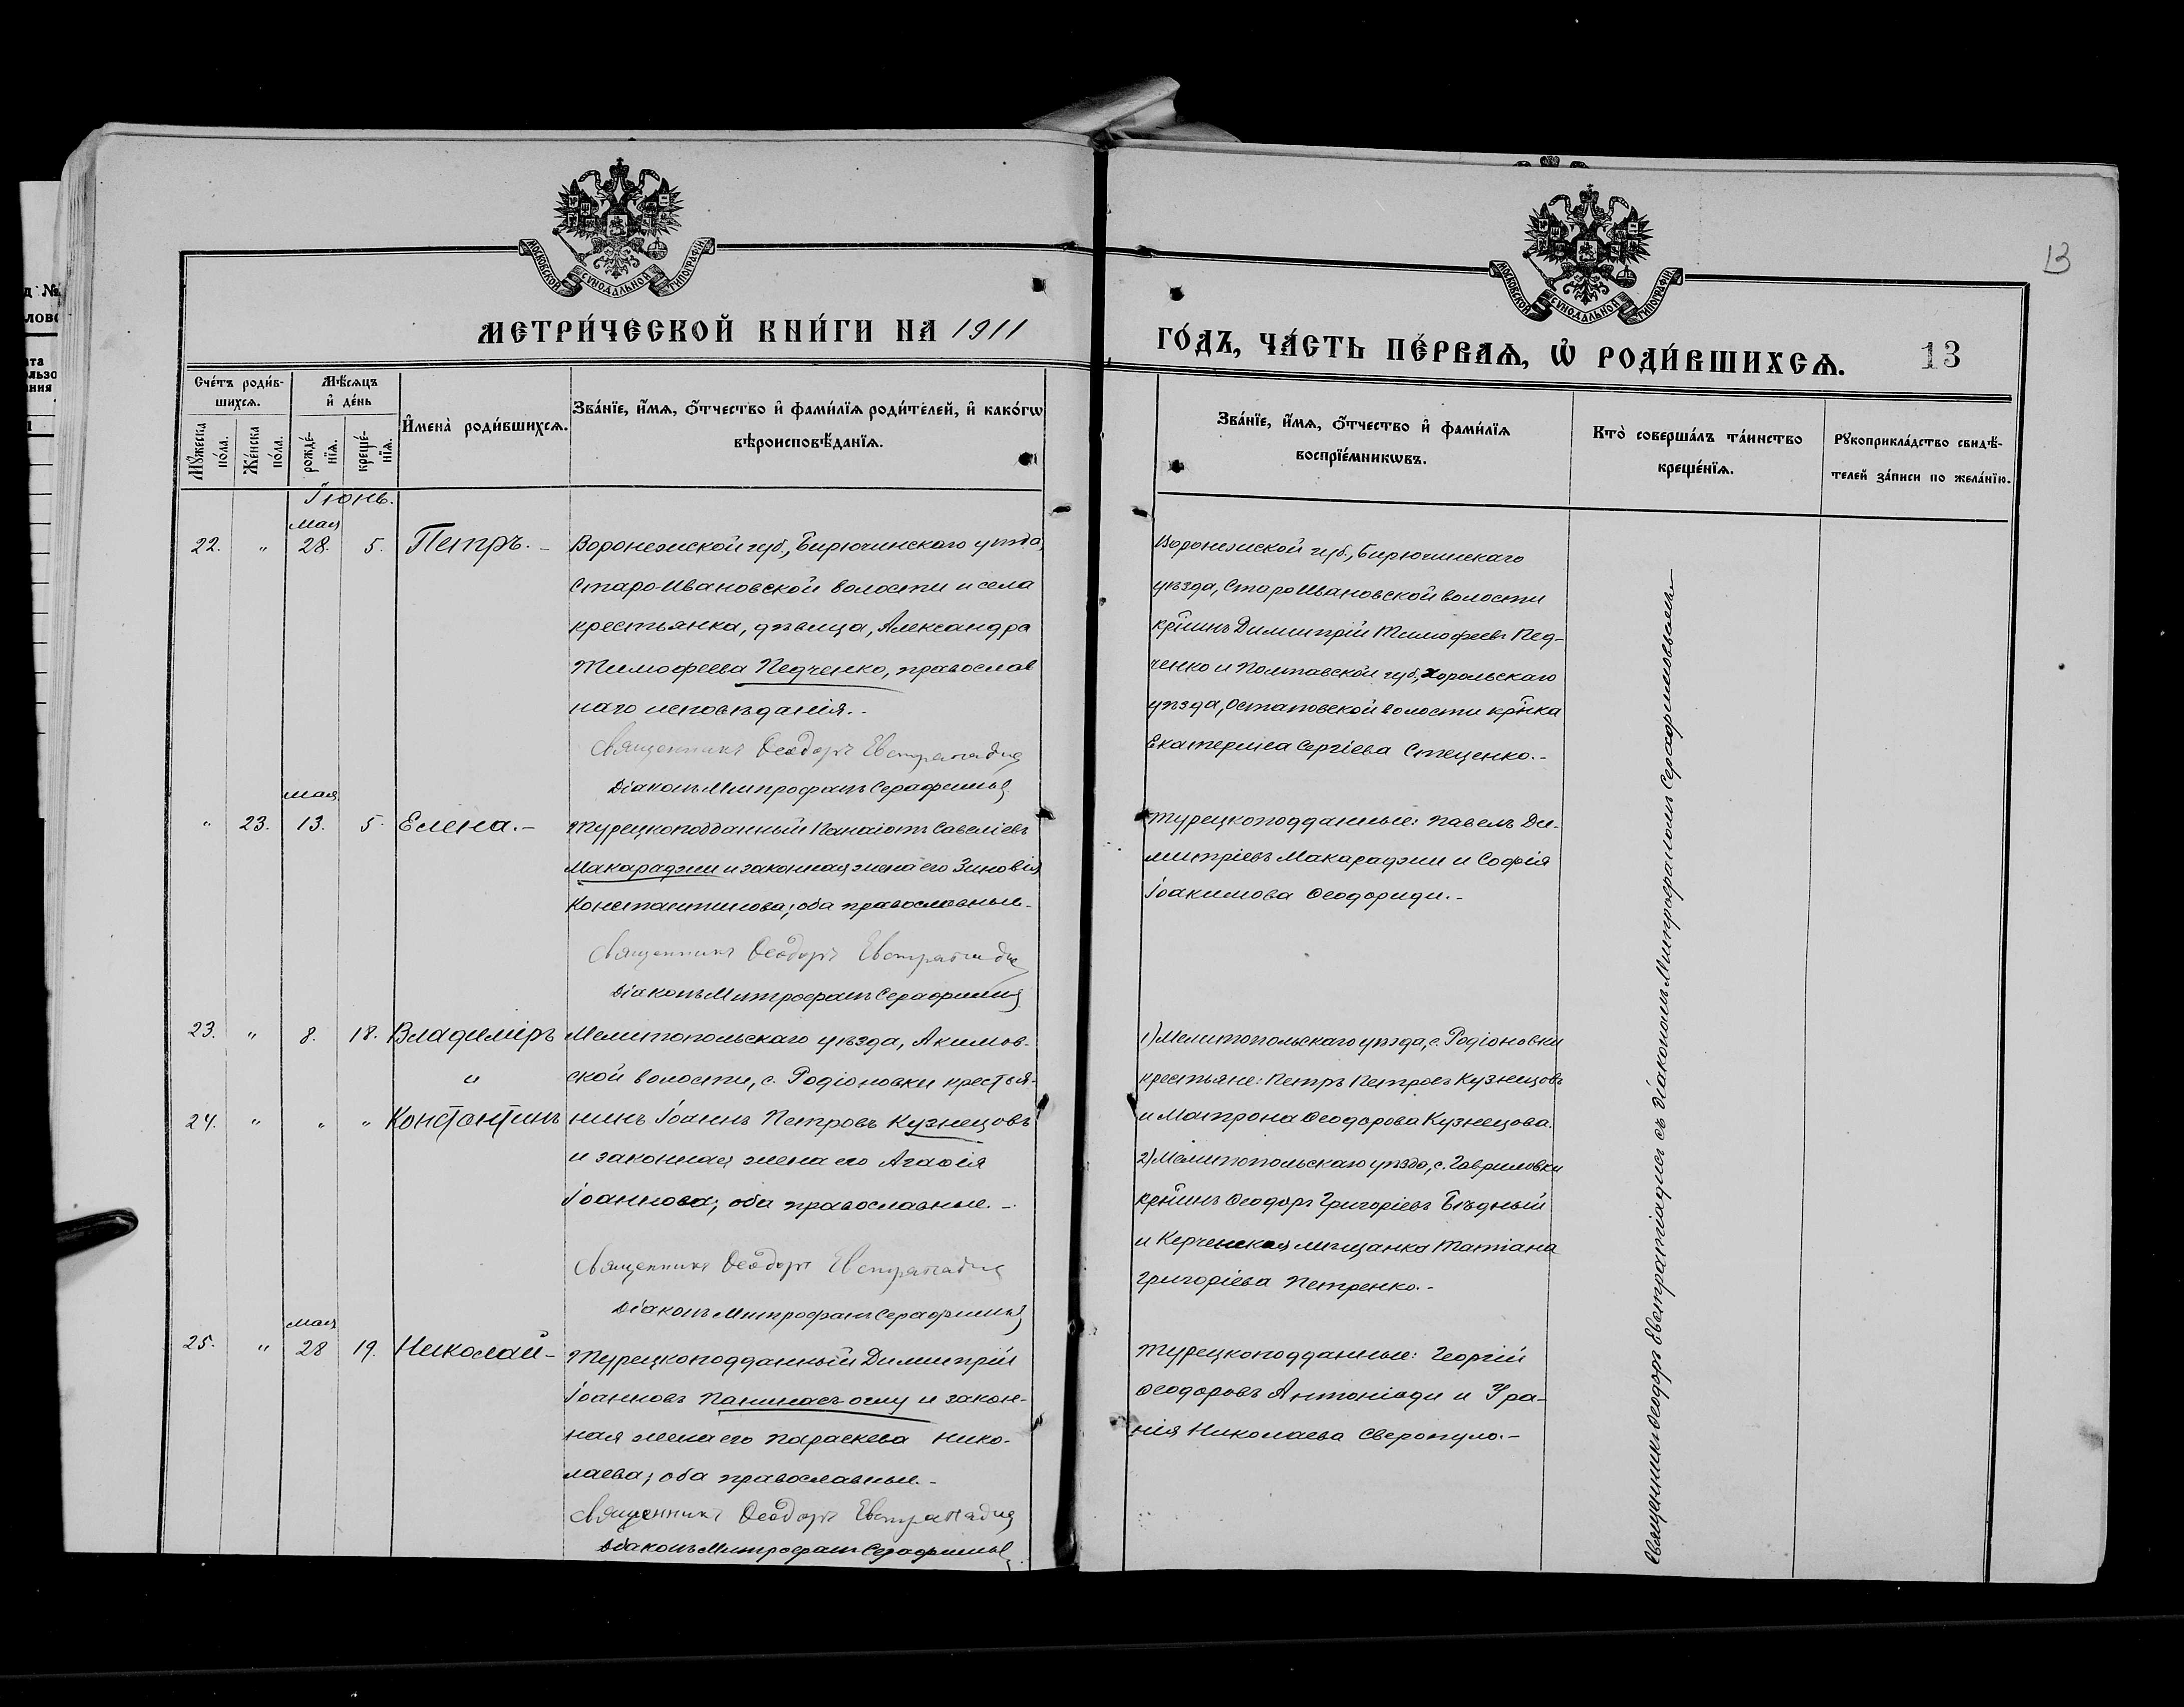 МЕТРИ́ЧЕСКОЙ КНИ́ГИ НА 1911
ГО́ДЪ, ЧА́СТЬ ПЕ́РВАѦ, Ѿ РОДИ́ВШИХСѦ.
13
13
МОСКОВСКОЙ СѴНОДАЛЬНОЙ ТИПОГРАФІИ
МОСКОВСКОЙ СѴНОДАЛЬНОЙ ТИПОГРАФІИ
Сче́тъ роди́в-
шихсѧ.
Мꙋ́жеска по́ла.
Же́нска по́ла.
Мѣ́сѧцъ
и҆ де́нь
рожде́-
нїѧ.
креще́-
нїѧ.
И҆мена̀ роди́вшихсѧ.
Зва́нїе, и҆́мѧ, ѻ҆́тчество и҆ фами́лїѧ роди́телей, и҆ како́гѡ
вѣроисповѣ́данїѧ.
Зва́нїе, и҆́мѧ, ѻ҆́тчество и҆ фами́лїѧ
воспрїе́мникѡвъ.
Кто̀ соверша́лъ та́инство
креще́нїѧ.
Рꙋкоприкла́дство свидѣ́-
телей за́писи по жела́нїю.
Іюнь.
мая
22. " 28. 5. Петръ. -
Воронежской губ., Бирючинскаго уѣзда,
Старо-Ивановской волости и села
крестьянка, дѣвица, Александра
Тимофеева Педченко, православ
наго исповѣданія. -
Священникъ Ѳеодоръ Евстратіадис
Діаконъ Митрофанъ Серафимов
Воронежской губ., Бирючинскаго
уѣзда, СтароИвановской волости
кр̃инъ Димитрій Тимофеевъ Пед-
ченко и Полтавской губ., Хорольскаго
уѣзда, Остаповской волости кр̃нка
Екатерина Сергіева Стеценко. -
мая
" 23. 13. 5. Елена. -
Турецкоподданный Панаіотъ Савеліевъ
Макараджи и законная жена его Зиновія
Константинова; оба православные. -
Священникъ Ѳеодоръ Евстратіадис
Діаконъ Митрофанъ Серафимов
Турецкоподданные: Павелъ Ди-
митріевъ Макараджи и Софія
Іоакимова Ѳеодориди. -
23. " 8. 18. Владиміръ
"
24. " " " Константинъ
Мелитопольскаго уѣзда, Акимов-
ской волости, с. Родіоновки крестья-
нинъ Іоаннъ Петровъ Кузнецовъ
и законная жена его Агаѳія
Іоаннова; оба православные. -
Священникъ Ѳеодоръ Евстратіадис
Діаконъ Митрофанъ Серафимов
1) Мелитопольскаго уѣзда, с. Родіоновки
крестьяне: Петръ Петровъ Кузнецовъ
и Матрона Ѳеодорова Кузнецова.
2) Мелитопольскаго уѣзда, с. Гавриловки
кр̃нинъ Ѳеодоръ Григоріевъ Бѣдный
и Керченская мѣщанка Татіана
Григоріева Петренко. -
мая
25. " 28 19. Николай -
Турецкоподданный Димитрій
Іоанновъ Панинасъ-оглу и закон-
ная жена его Параскева Нико-
лаева; оба православные. -
Священникъ Ѳеодоръ Евстратіадис
Діаконъ Митрофанъ Серафимов
Турецкоподданные: Георгій
Ѳеодоровъ Антоніади и Ура-
нія Николаева Сверопуло. -
Священникъ Ѳеодоръ Евстратіадис съ діакономъ Митрофаномъ Серафимовымъ